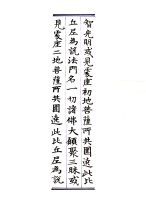 智光明或見處座初地菩薩所共圍遶此比
丘丘為說法門名一切諸佛大願聚三昧或
見處座二地菩薩所共圍遶此比丘為說